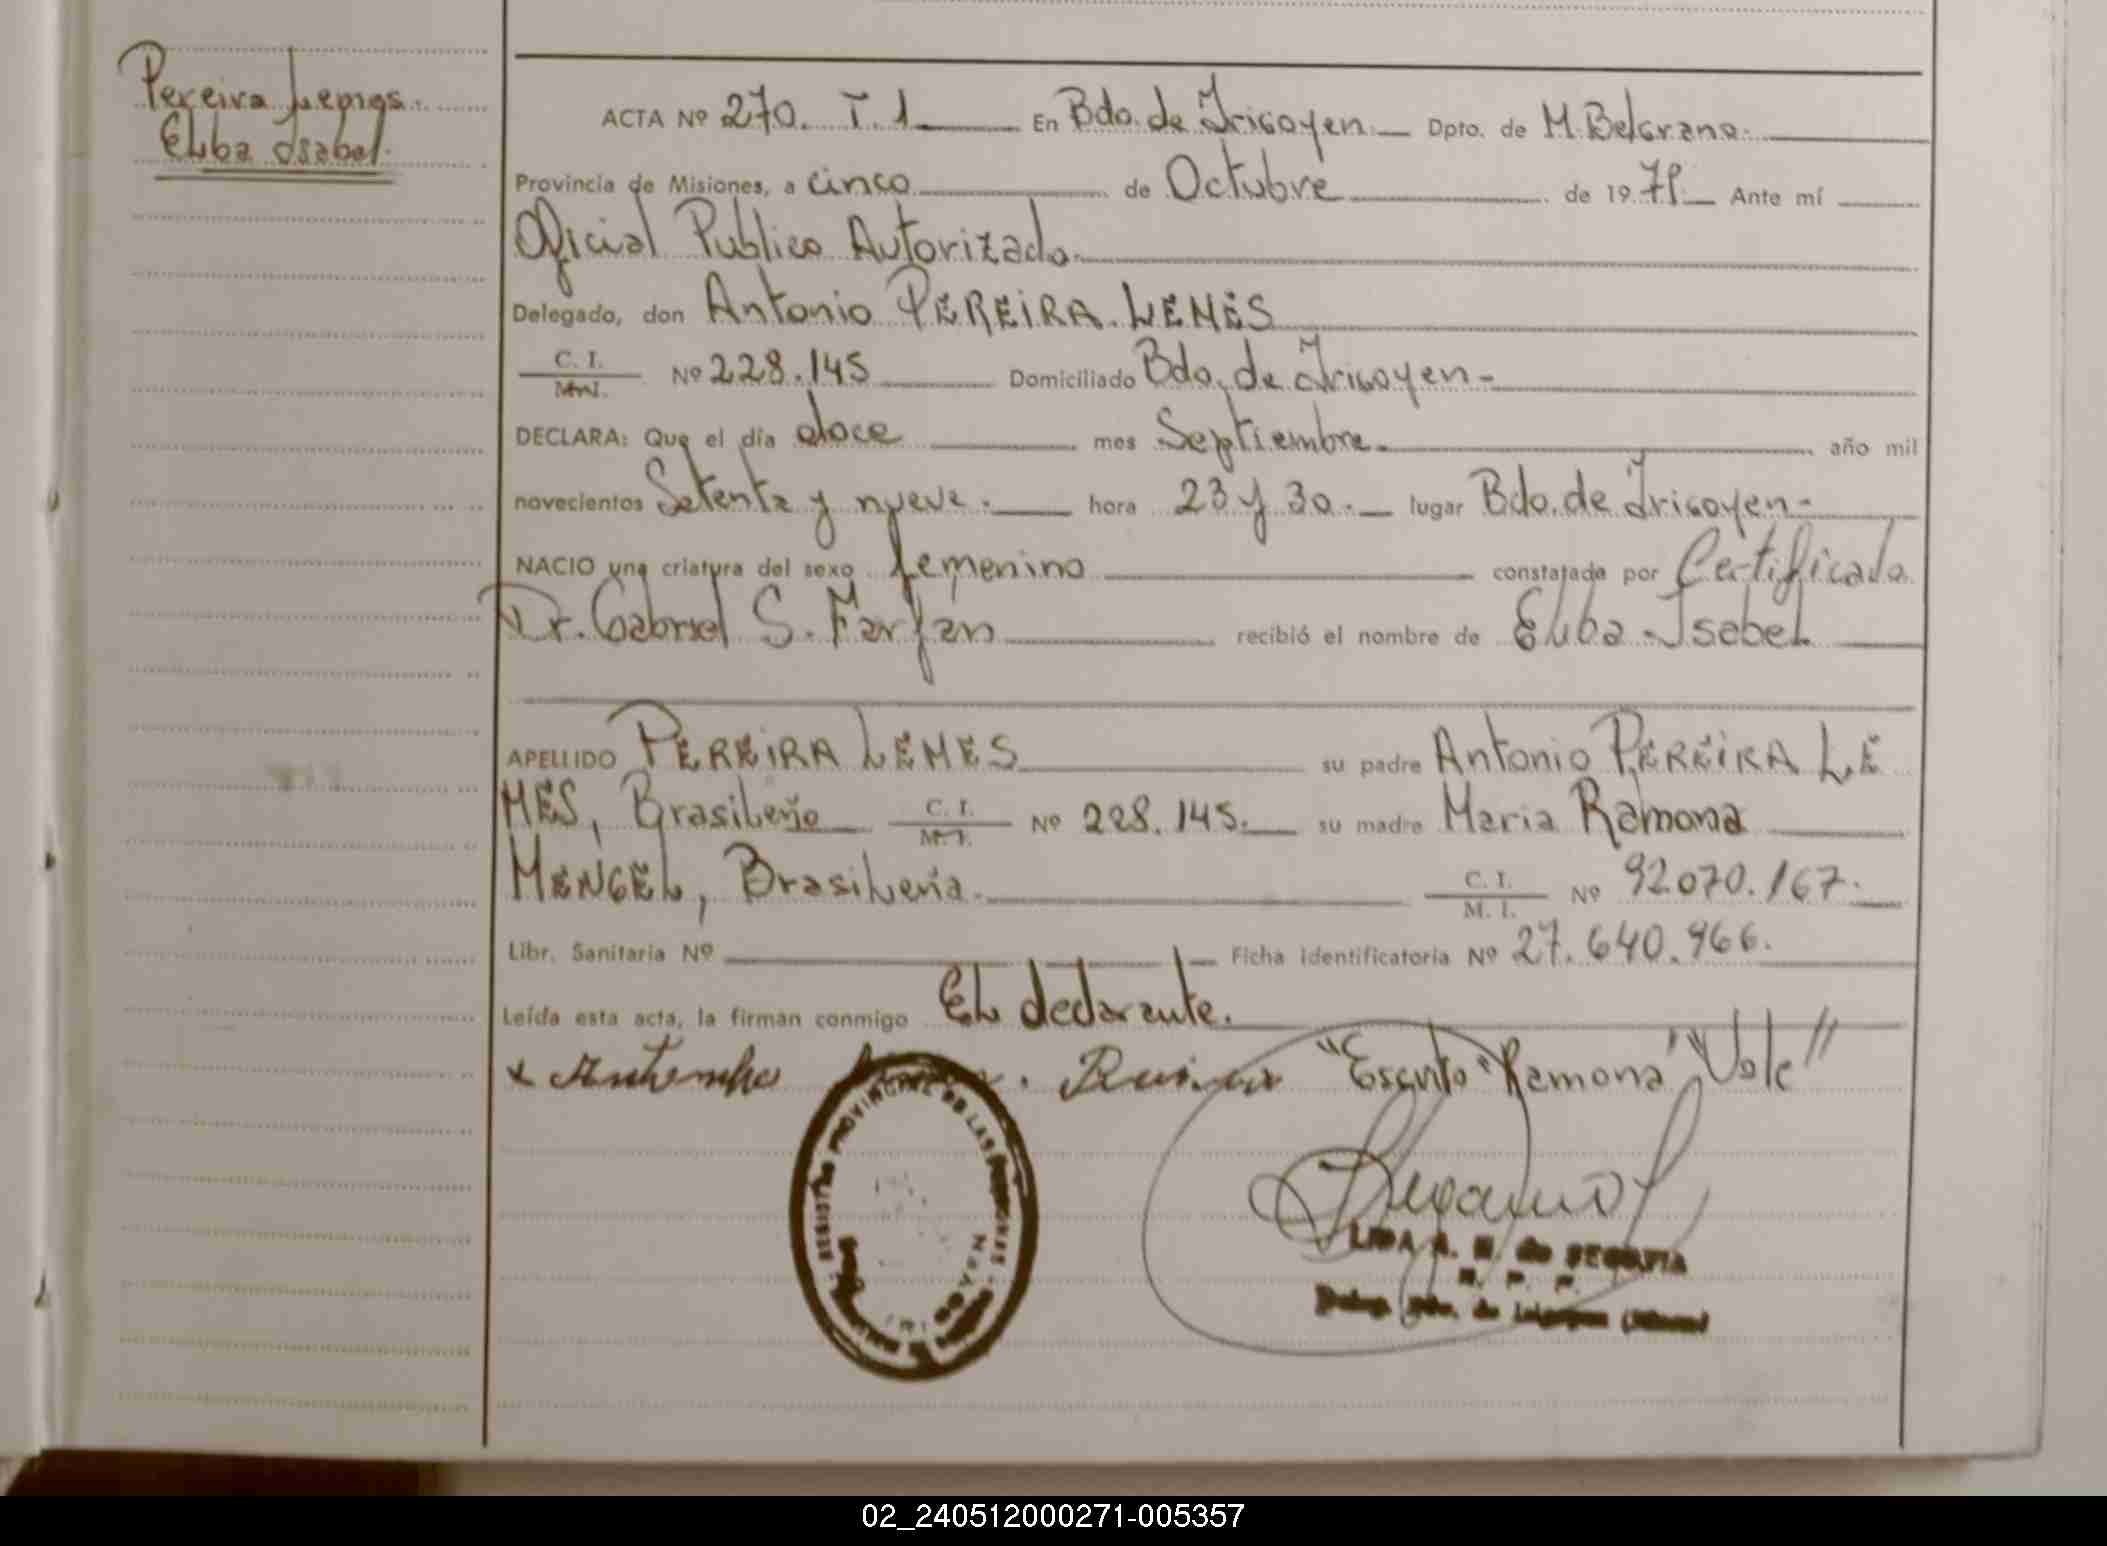 Pereira Lemes.
Elba Isabel.
ACTA Nº 270. T. 1 En Bdo. de Irigoyen Dpto. de M. Belgrano.
Provincia de Misiones, a cinco de Octubre de 1979 Ante mí
Oficial Publico Autorizado.
Delegado, don Antonio PEREIRA LEMES
C. I.
M. I. Nº 228.145 Domiciliado Bdo. de Irigoyen-
DECLARA: Que el día doce mes Septiembre. año mil
novecientos Setenta y nueve. hora 23 y 30. lugar Bdo. de Irigoyen-
NACIO una criatura del sexo femenino constatada por Certificado
Dr. Gabriel S. Farfan recibió el nombre de Elba Isabel
APELLIDO PEREIRA LEMES su padre Antonio PEREIRA LE
MES, Brasileño C. I.
M. I. Nº 228.145. su madre Maria Ramona
MENGEL, Brasileña. C. I.
M. I. Nº 92.070.167.
Libr. Sanitaria Nº Ficha identificatoria Nº 27.640.966.
Leída esta acta, la firman conmigo El declarante.
"Escrito "Ramona" "Vale"
REGISTRO PROVINCIAL DE LAS PERSONAS
LIDA A. N. de SEQUEIRA
02_240512000271-005357